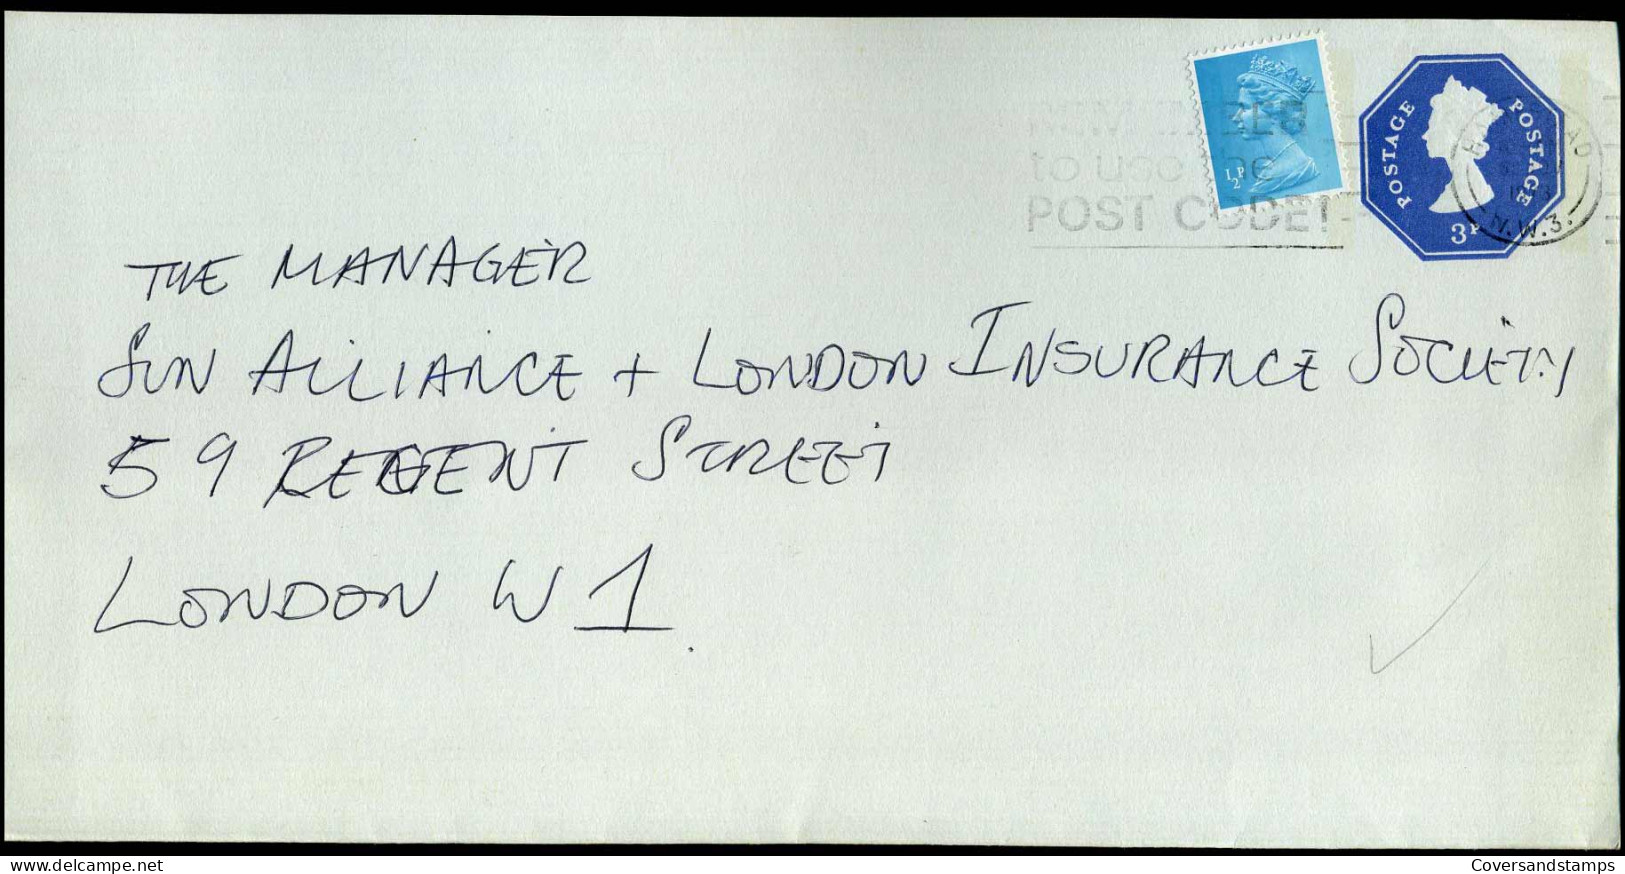 REMEMBER
to use the
POST CODE!
½P
POSTAGE POSTAGE
3P
N.W.3.
THE MANAGER
SUN ALLIANCE + LONDON INSURANCE SOCIETY
59 REGENT STREET
LONDON W1.
Coversandstamps